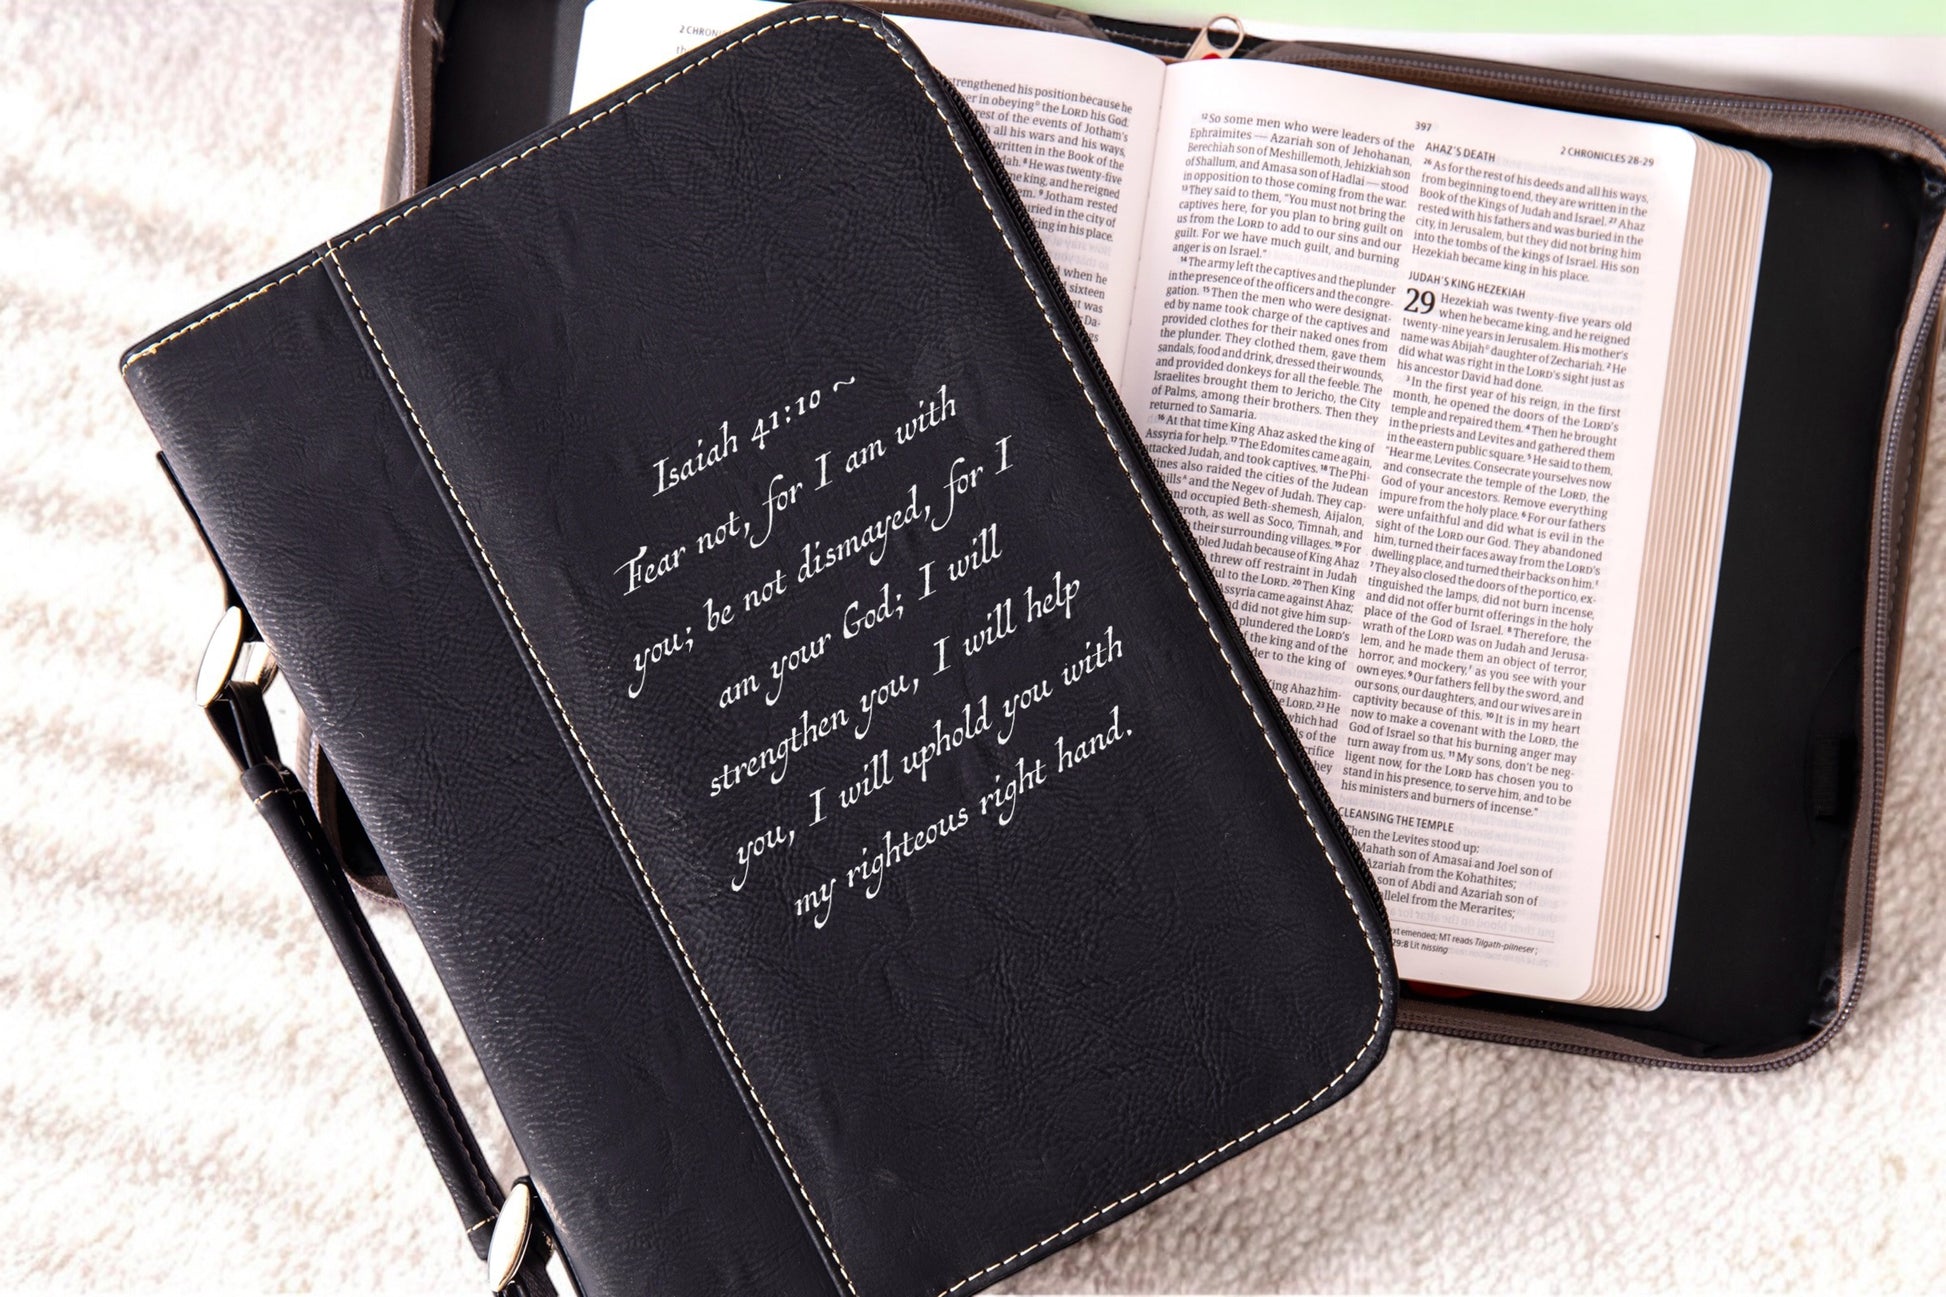 Isaiah 41:10 ~
Fear not, for I am with
you; be not dismayed, for I
am your God; I will
strengthen you, I will help
you, I will uphold you with
my righteous right hand.
his position because he
in obeying° the LORD his God.
of the events of Jotham's
all his wars and his ways,
written in the Book of the
⁸ He was twenty-five
king, and he reigned
⁹ Jotham rested
in the city of
in his place.
when he
sixteen
was
397
2 CHRONICLES 28-29
¹²So some men who were leaders of the
Ephraimites — Azariah son of Jehohanan,
Berechiah son of Meshillemoth, Jehizkiah son
of Shallum, and Amasa son of Hadlai — stood
in opposition to those coming from the war.
¹³They said to them, "You must not bring the
captives here, for you plan to bring guilt on
us from the LORD to add to our sins and our
guilt. For we have much guilt, and burning
anger is on Israel."
¹⁴The army left the captives and the plunder
in the presence of the officers and the congre-
gation. ¹⁵Then the men who were designat-
ed by name took charge of the captives and
provided clothes for their naked ones from
the plunder. They clothed them, gave them
sandals, food and drink, dressed their wounds,
and provided donkeys for all the feeble. The
Israelites brought them to Jericho, the City
of Palms, among their brothers. Then they
returned to Samaria.
¹⁶At that time King Ahaz asked the king of
Assyria for help. ¹⁷The Edomites came again,
attacked Judah, and took captives. ¹⁸The Phi-
also raided the cities of the Judean
and the Negev of Judah. They cap-
and occupied Beth-shemesh, Aijalon,
as well as Soco, Timnah, and
their surrounding villages. ¹⁹For
Judah because of King Ahaz
threw off restraint in Judah
to the LORD. ²⁰Then King
Assyria came against Ahaz;
did not give him sup-
plundered the LORD's
of the king and of the
to the king of
King Ahaz him-
LORD. ²³He
which had
of the
AHAZ'S DEATH
²⁶As for the rest of his deeds and all his ways,
from beginning to end, they are written in the
Book of the Kings of Judah and Israel. ²⁷Ahaz
rested with his fathers and was buried in the
city, in Jerusalem, but they did not bring him
into the tombs of the kings of Israel. His son
Hezekiah became king in his place.
JUDAH'S KING HEZEKIAH
29 Hezekiah was twenty-five years old
when he became king, and he reigned
twenty-nine years in Jerusalem. His mother's
name was Abijah daughter of Zechariah. ²He
did what was right in the LORD's sight just as
his ancestor David had done.
³In the first year of his reign, in the first
month, he opened the doors of the LORD's
temple and repaired them. ⁴Then he brought
in the priests and Levites and gathered them
in the eastern public square. ⁵He said to them,
"Hear me, Levites. Consecrate yourselves now
and consecrate the temple of the LORD, the
God of your ancestors. Remove everything
impure from the holy place. ⁶For our fathers
were unfaithful and did what is evil in the
sight of the LORD our God. They abandoned
him, turned their faces away from the LORD's
dwelling place, and turned their backs on him.
⁷They also closed the doors of the portico, ex-
tinguished the lamps, did not burn incense,
and did not offer burnt offerings in the holy
place of the God of Israel. ⁸Therefore, the
wrath of the LORD was on Judah and Jerusa-
lem, and he made them an object of terror,
horror, and mockery, as you see with your
own eyes. ⁹Our fathers fell by the sword, and
our sons, our daughters, and our wives are in
captivity because of this. ¹⁰It is in my heart
now to make a covenant with the LORD, the
God of Israel so that his burning anger may
turn away from us. ¹¹My sons, don't be neg-
ligent now, for the LORD has chosen you to
stand in his presence, to serve him, and to be
his ministers and burners of incense."
CLEANSING THE TEMPLE
Then the Levites stood up:
Mahath son of Amasai and Joel son of
Azariah from the Kohathites;
son of Abdi and Azariah son of
from the Merarites;
emended; MT reads Tilgath-pilneser;
29:8 Lit hissing